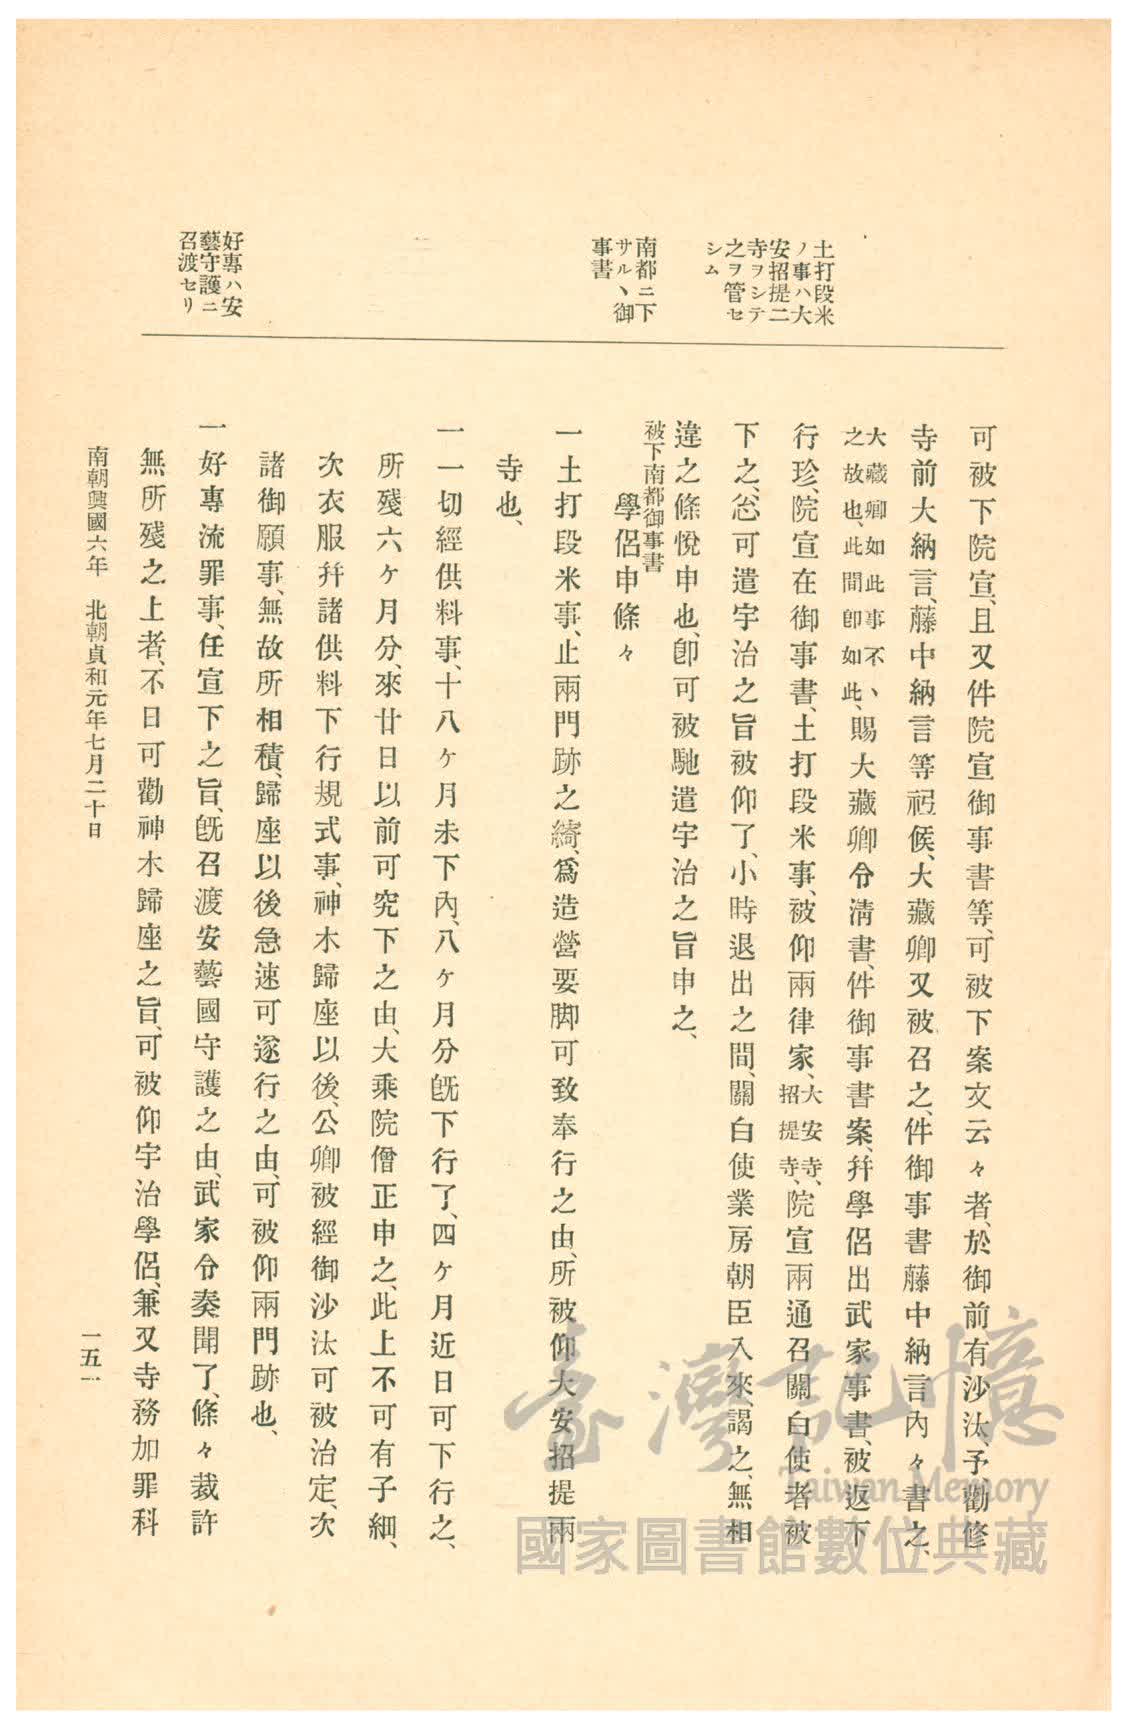 土打段米
ノ事ハ大
安招提二
寺ヲシテ
之ヲ管セ
シム
南都ニ下
サルヽ御
事書
好專ハ安
藝守護ニ
召渡セリ
可被下院宣、且又件院宣御事書等、可被下案文云々者、於御前有沙汰、予勸修
寺前大納言、藤中納言等祗候、大藏卿又被召之、件御事書藤中納言內々書之、
大藏卿如此事不、
之故也、此間卽如此、賜大藏卿令淸書、件御事書案、幷學侶出武家事書、被返下
行珍、院宣在御事書、土打段米事、被仰兩律家、大安寺、招提寺、院宣兩通召關白使者被
下之、忩可遣宇治之旨被仰了、小時退出之間、關白使業房朝臣入來、謁之、無相
違之條悅申也、卽可被馳遣宇治之旨申之、
被下南都御事書
學侶申條々
一土打段米事、止兩門跡之綺、爲造營要脚可致奉行之由、所被仰大安招提兩
寺也、
一一切經供料事、十八ヶ月未下內、八ヶ月分旣下行了、四ヶ月近日可下行之、
所殘六ヶ月分、來廿日以前可究下之由、大乘院僧正申之、此上不可有子細、
次衣服幷諸供料下行規式事、神木歸座以後、公卿被經御沙汰可被治定、次
諸御願事、無故所相積、歸座以後急速可遂行之由、可被仰兩門跡也、
一好專流罪事、任宣下之旨、旣召渡安藝國守護之由、武家令奏聞了、條々裁許
無所殘之上者、不日可勸神木歸座之旨、可被仰宇治學侶、兼又寺務加罪科
南朝興國六年　北朝貞和元年七月二十日
一五一
臺灣記憶
Taiwan Memory
國家圖書館數位典藏